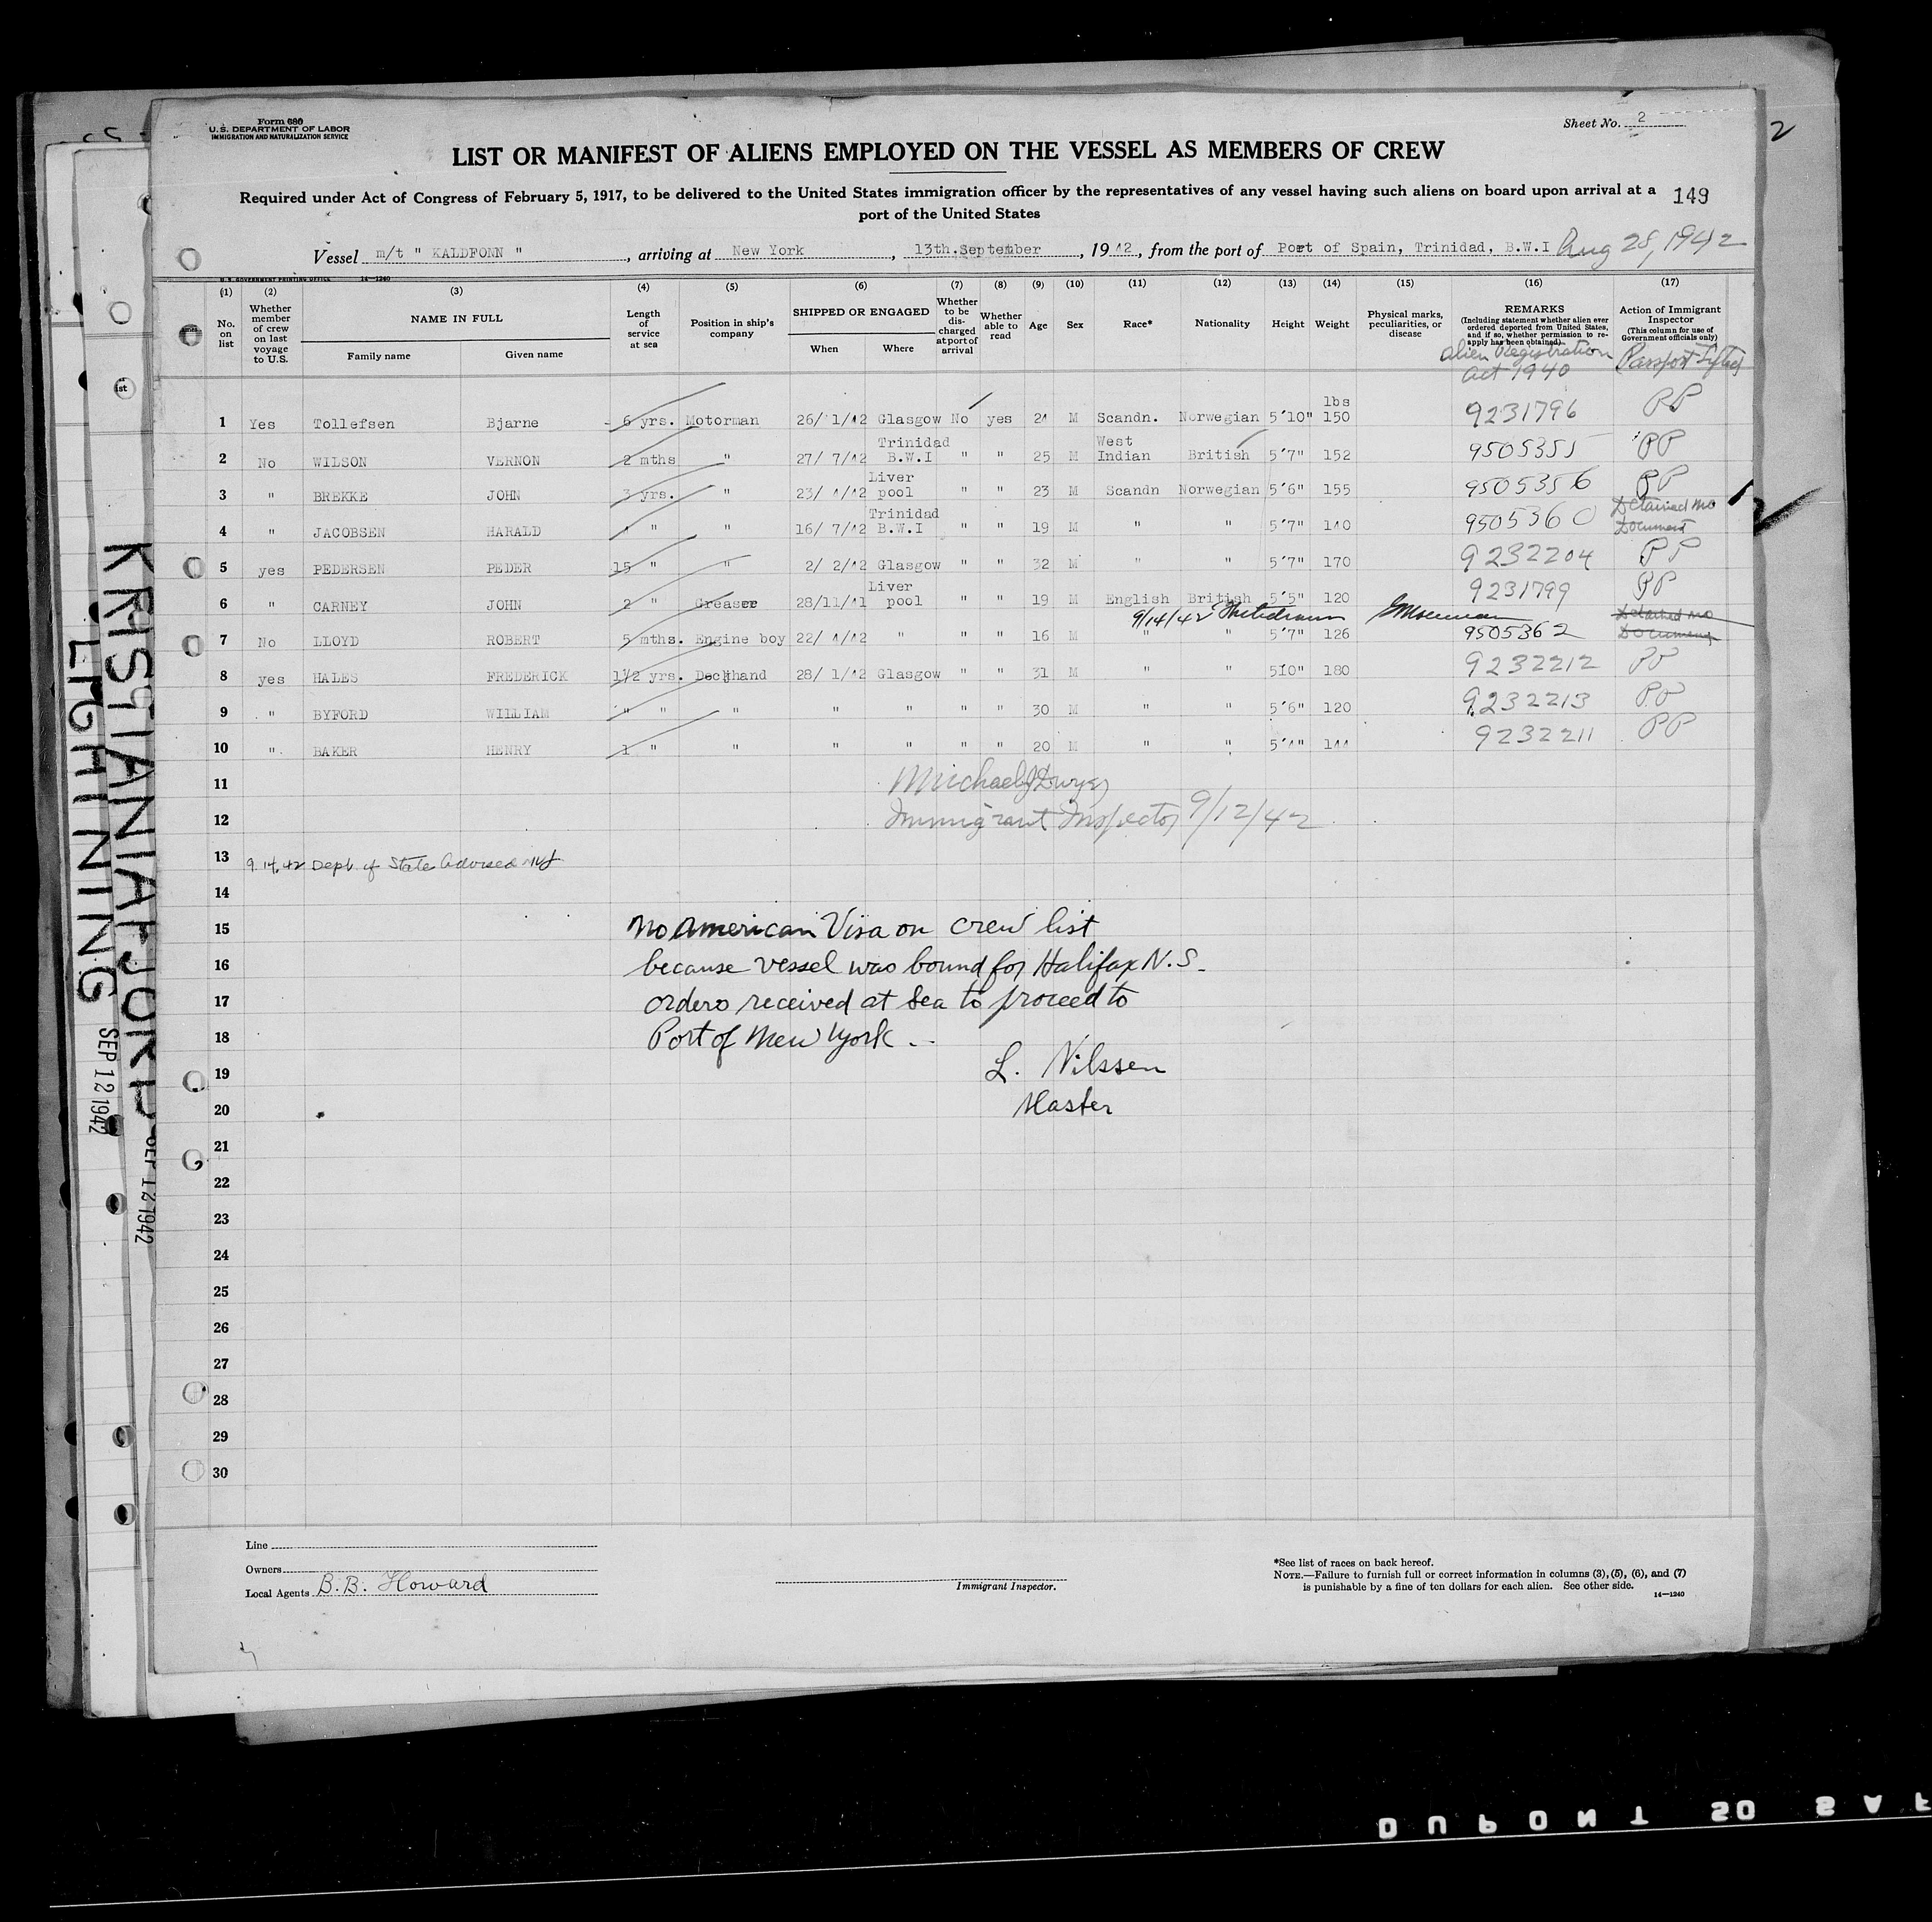 Form 680
U.S. DEPARTMENT OF LABOR
IMMIGRATION AND NATURALIZATION SERVICE
Sheet No. 2
2
LIST OR MANIFEST OF ALIENS EMPLOYED ON THE VESSEL AS MEMBERS OF CREW
Required under Act of Congress of February 5, 1917, to be delivered to the United States immigration officer by the representatives of any vessel having such aliens on board upon arrival at a
port of the United States
149
Vessel m/t " KALDFONN " , arriving at New York , 13th.September , 1942, from the port of Port of Spain, Trinidad, B.W.I Aug 28, 1942
U.S. GOVERNMENT PRINTING OFFICE 14—1240
(1) (2) (3) (4) (5) (6) (7) (8) (9) (10) (11) (12) (13) (14) (15) (16) (17)
No. on list
Whether member of crew on last voyage to U.S.
NAME IN FULL
Family name Given name
Length of service at sea
Position in ship's company
SHIPPED OR ENGAGED
When Where
Whether to be dis-charged at port of arrival
Whether able to read
Age Sex Race* Nationality Height Weight
Physical marks, peculiarities, or disease
REMARKS
(Including statement whether alien ever ordered deported from United States, and if so, whether permission to re-apply has been obtained)
Alien Registration
Act 1940
Action of Immigrant Inspector
(This column for use of Government officials only)
Passport
lbs
1 Yes Tollefsen Bjarne 6 yrs. Motorman 26/ 1/42 Glasgow No yes 24 M Scandn. Norwegian 5'10" 150 9231796 PP
2 No WILSON VERNON 2 mths " 27/ 7/42 Trinidad B.W.I " " 25 M West Indian British 5'7" 152 9505355 PP
3 " BREKKE JOHN 3 yrs. " 23/ 4/42 Liver pool " " 23 M Scandn Norwegian 5'6" 155 9505356 PP
4 " JACOBSEN HARALD 4 " " 16/ 7/42 Trinidad B.W.I " " 19 M " " 5'7" 140 9505360 Detained no Document
5 yes PEDERSEN PEDER 15 " " 2/ 2/42 Glasgow " " 32 M " " 5'7" 170 9232204 PP
6 " CARNEY JOHN 2 " Greaser 28/11/41 Liver pool " " 19 M English British 5'5" 120 9231799 PP
9/14/42
7 No LLOYD ROBERT 5 mths. Engine boy 22/ 4/42 " " " 16 M " " 5'7" 126 9505362 Detained no Document
8 yes HALES FREDERICK 1½ yrs. Deckhand 28/ 1/42 Glasgow " " 31 M " " 5'10" 180 9232212 PP
9 " BYFORD WILLIAM " " " " " " " 30 M " " 5'6" 120 9232213 PP
10 " BAKER HENRY 1 " " " " " " 20 M " " 5'4" 144 9232211 PP
11 Michael J Dwyer
12 Immigrant Inspector 9/12/42
13 9.14.42 Dept of State Advised
14
15 No American Visa on crew list
16 because vessel was bound for Halifax N.S.
17 orders received at sea to proceed to
18 Port of New York.
19 L. Nilssen
20 Master
21
22
23
24
25
26
27
28
29
30
Line
Owners
Local Agents B.B. Howard
Immigrant Inspector.
*See list of races on back hereof.
NOTE.—Failure to furnish full or correct information in columns (3), (5), (6), and (7)
is punishable by a fine of ten dollars for each alien. See other side.
14—1240
KRISTIANIAFJORD SEP 12 1942
LIGHTNING SEP 12 1942
1st
DUPONT SO SAF